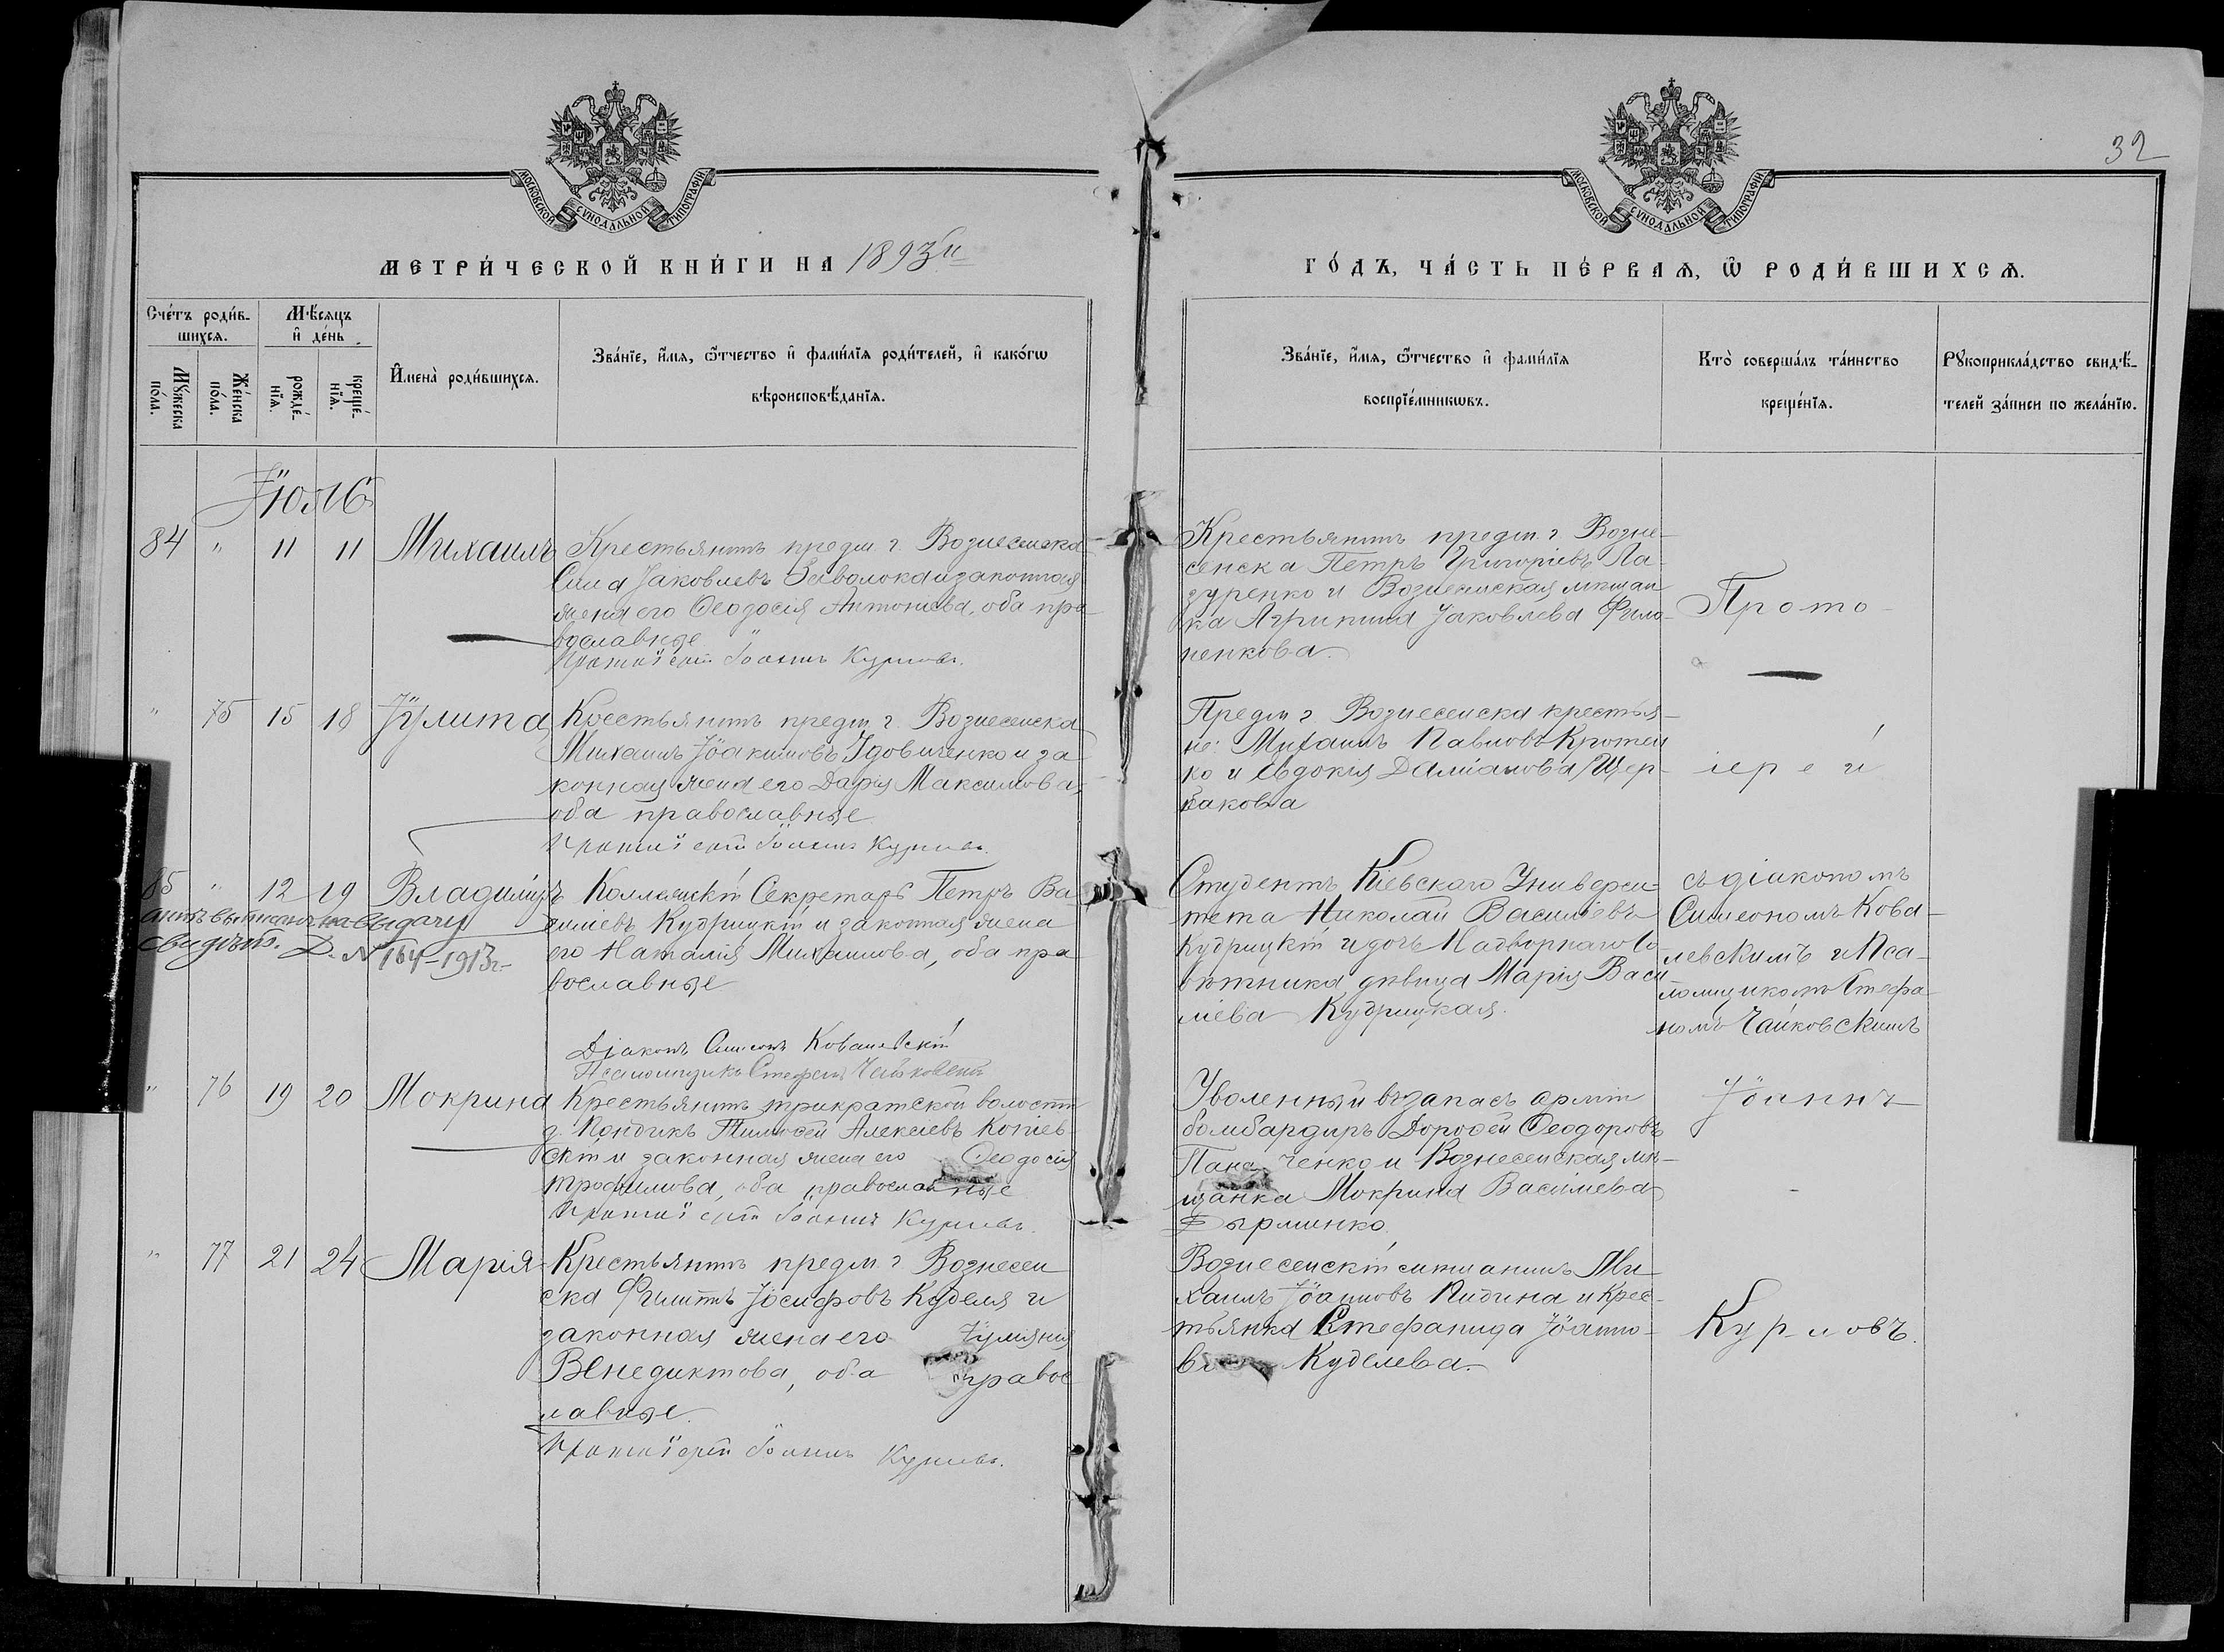 32
МОСКОВСКОЙ СѴНОДАЛЬНОЙ ТИПОГРАФІИ
МОСКОВСКОЙ СѴНОДАЛЬНОЙ ТИПОГРАФІИ
МЕТРИ́ЧЕСКОЙ КНИ́ГИ НА 1893й
ГО́ДЪ, ЧА́СТЬ ПЕ́РВАѦ, Ѽ РОДИ́ВШИХСѦ.
Сче́тъ роди́в-
шихсѧ.
Мꙋ́жеска по́ла.
Же́нска по́ла.
Мѣ́сѧцъ
и҆ де́нь
рожде́-
нїѧ.
креще́-
нїѧ.
И҆мена̀ роди́вшихсѧ.
Зва́нїе, и҆́мѧ, ѻ҆́тчество и҆ фами́лїѧ роди́телей, и҆ како́гѡ
вѣроисповѣ́данїѧ.
Зва́нїе, и҆́мѧ, ѻ҆́тчество и҆ фами́лїѧ
воспрїе́мникѡвъ.
Кто̀ соверша́лъ та́инство
креще́нїѧ.
Рꙋкоприкла́дство свидѣ́-
телей за́писи по жела́нїю.
Іюль
84 " 11 11 Михаилъ
Крестьянинъ предм. г. Вознесенска
Сила Іаковлевъ Заволока и законная
жена его Ѳеодосія Антонiева, оба пра-
вославные
Протоіерей Іоаннъ Курловъ.
Крестьянинъ предм. г. Возне-
сенска Петръ Григоріевъ Ла-
зуренко и Вознесенская мѣщан
ка Агрипина Іаковлева Фило-
ненкова.
Прото-
" 75 15 18 Іулита
Крестьянинъ предм. г. Вознесенска
Михаилъ Іоакимовъ Удовиченко и за
конная жена его Дарія Максимова,
оба православные
Протоіерей Іоаннъ Курловъ.
Предм. г. Вознесенска крестья-
не: Михаилъ Павловъ Кротен
ко и Евдокія Даміанова Щер-
бакова
іерей
85 " 12 19 Владиміръ
Коллежскій Секретарь Петръ Ва-
силіевъ Кудрицкій и законная жена
его Наталія Михаилова, оба пра
вославные
актъ выписанъ на выдачу
свидѣт. Д. № 164-1913 г.
Діаконъ Симеонъ Ковалевскій
Псаломщикъ Стефанъ Чайковскій
Студентъ Кіевскаго Универси-
тета Николай Василіевъ
Кудрицкій и дочь Надворнаго Со-
вѣтника дѣвица Марія Васи-
ліева Кудрицкая.
съ діакономъ
Симеономъ Кова-
левскимъ и Пса-
ломщикомъ Стефа-
номъ Чайковскимъ
" 76 19 20 Мокрина
Крестьянинъ трикратской волости
Тимоѳей Алексіевъ
и законная жена его Ѳеодосія
Трофимова, оба православные
Протоіерей Іоаннъ Курловъ.
Уволенный въ запасъ арміи
бомбардиръ Дороѳей Ѳеодоровъ
ченко и Вознесенская мѣ-
щанка Мокрина Василіева
Іоаннъ
" 77 21 24 Марія
Крестьянинъ предм. г. Вознесен
ска Филиппъ Іосифовъ Куделя и
законная жена его Іуліянія
Венедиктова, оба правос
лавные.
Протоіерей Іоаннъ Курловъ.
Вознесенскій мѣщанинъ Ми-
хаилъ Іоанновъ и крес-
тьянка Стефанида Іоанно-
ва Куделева.
Курловъ.